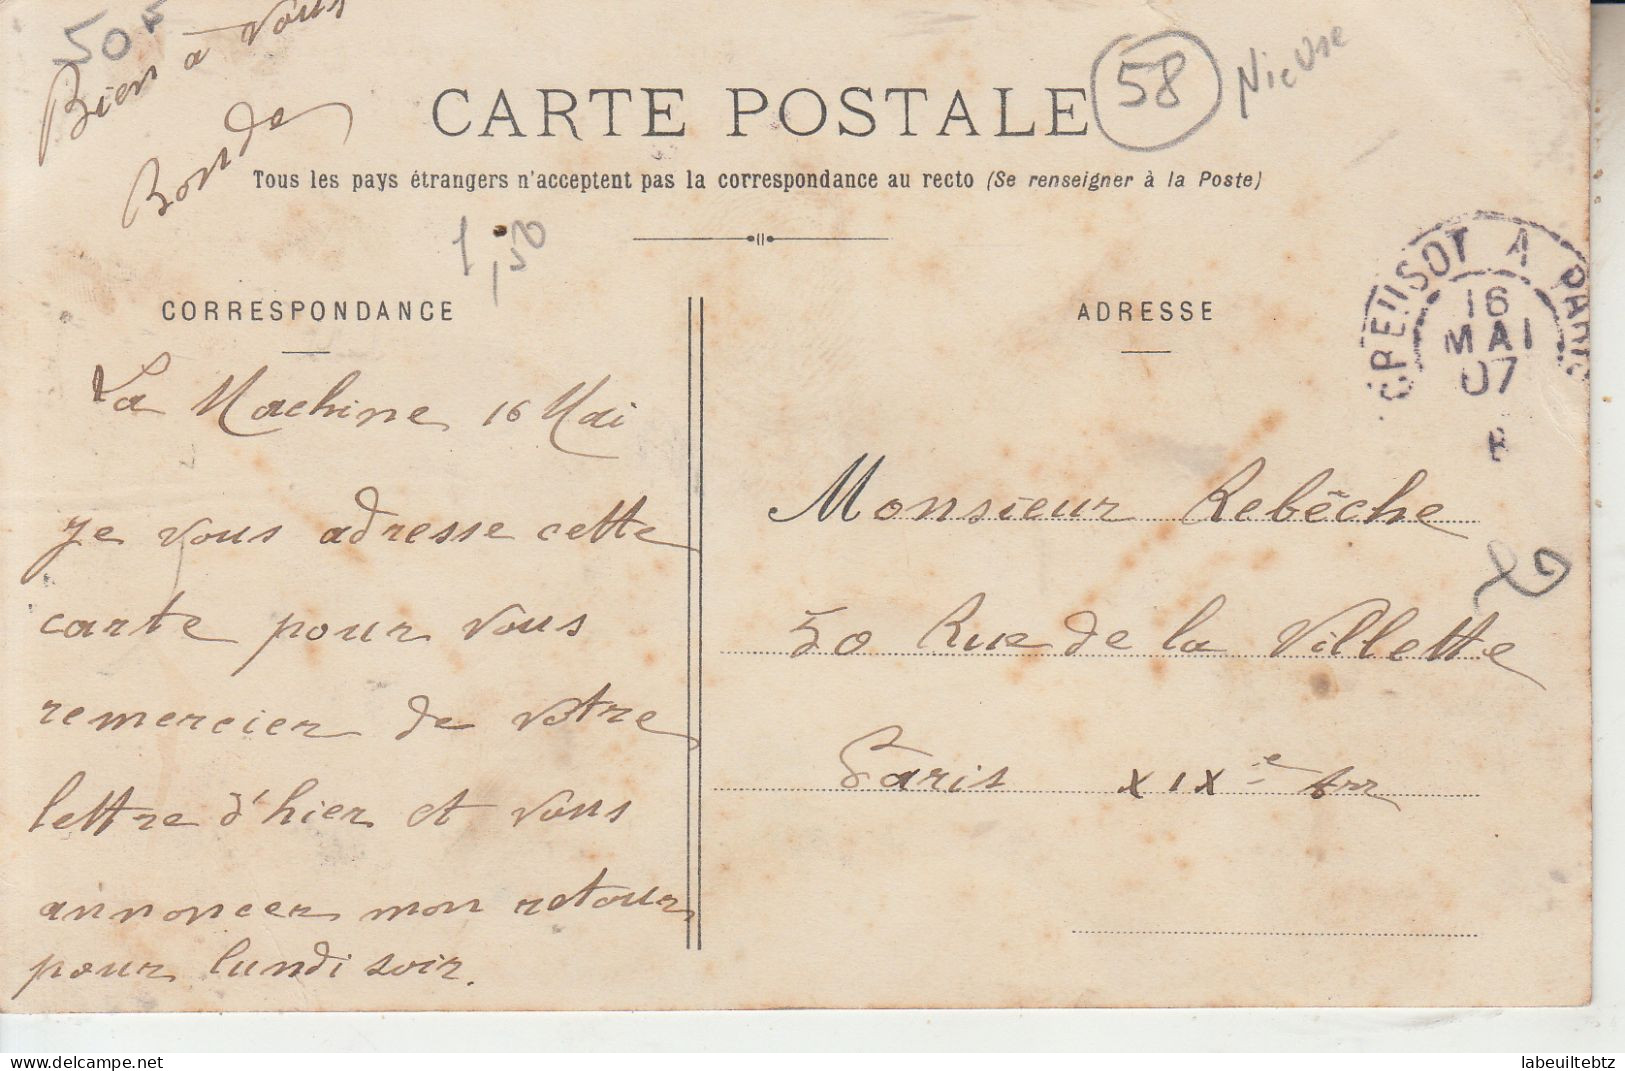 50 F
Bien à vous
Bonde
CARTE POSTALE
58
Nievre
Tous les pays étrangers n'acceptent pas la correspondance au recto (Se renseigner à la Poste)
1,50
CORRESPONDANCE
La Machine 16 Mai
Je vous adresse cette
carte pour vous
remercier de votre
lettre d'hier et vous
annoncer mon retour
pour lundi soir.
ADRESSE
CREUSOT A PARIS
16
MAI
07
Monsieur Rebêche
50 Rue de la Villette
Paris XIXe Arr
delcampe.net
labeuiltebtz